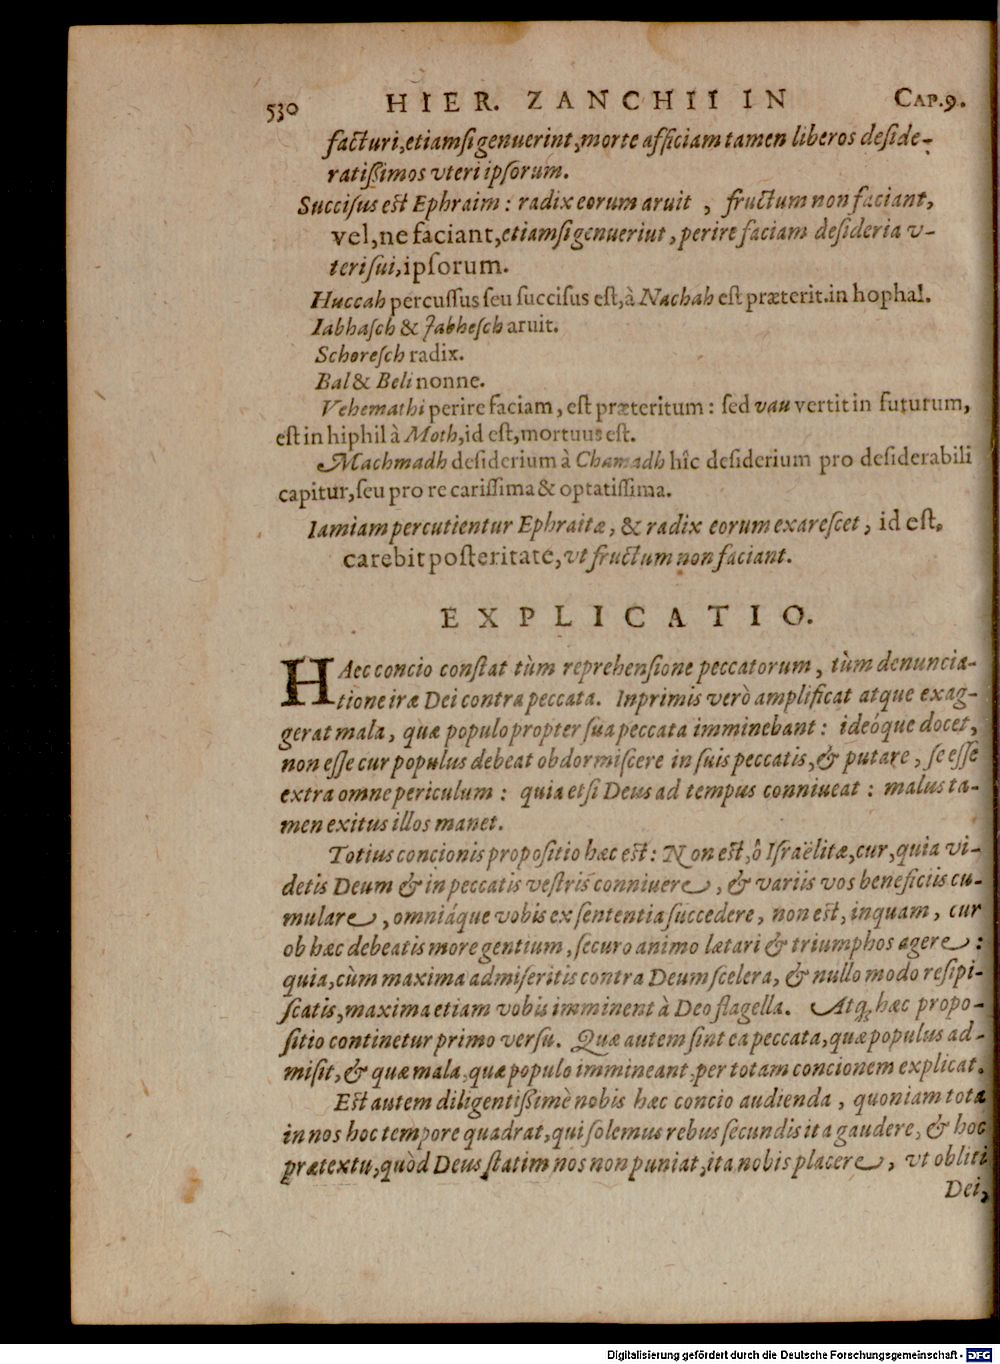 530 HIER. ZANCHII IN CAP.9.
facturi, etiamsi genuerint, morte afficiam tamen liberos deside-
ratißimos vteri ipsorum.
Succisus est Ephraim: radix eorum aruit, fructum non faciant,
vel, ne faciant, etiamsi genueriut, perire faciam desideria v-
teri sui, ipsorum.
Huccah percussus seu succisus est, à Nachah est præterit. in hophal.
Iabhasch & Jabhesch aruit.
Schoresch radix.
Bal & Beli nonne.
Vehemathi perire faciam, est præteritum: sed vau vertit in futurum,
est in hiphil à Moth, id est, mortuus est.
Machmadh desiderium à Chamadh hîc desiderium pro desiderabili
capitur, seu pro re carissima & optatissima.
Iamiam percutientur Ephraitæ, & radix eorum exarescet, id est,
carebit posteritate, vt fructum non faciant.
EXPLICATIO.
HAec concio constat tùm reprehensione peccatorum, tùm denuncia-
tione iræ Dei contra peccata. Inprimis verò amplificat atque exag-
gerat mala, quæ populo propter sua peccata imminebant: ideóque docet,
non esse cur populus debeat obdormiscere in suis peccatis, & putare, se esse
extra omne periculum: quia etsi Deus ad tempus conniueat: malus ta-
men exitus illos manet.
Totius concionis propositio hæc est: Non est, ô Israëlitæ, cur, quia vi-
detis Deum & in peccatis vestris conniuere, & variis vos beneficiis cu-
mulare, omniáque vobis ex sententia succedere, non est, inquam, cur
ob hæc debeatis more gentium, securo animo lætari & triumphos agere:
quia, cùm maxima admiseritis contra Deum scelera, & nullo modo resipi-
scatis, maxima etiam vobis imminent à Deo flagella. Atq; hæc propo-
sitio continetur primo versu. Quæ autem sint ea peccata, quæ populus ad-
misit, & quæ mala, quæ populo immineant, per totam concionem explicat.
Est autem diligentißimè nobis hæc concio audienda, quoniam tota
in nos hoc tempore quadrat, qui solemus rebus secundis ita gaudere, & hoc
prætextu, quòd Deus statim nos non puniat, ita nobis placere, vt obliti
Dei,
Digitalisierung gefördert durch die Deutsche Forschungsgemeinschaft - DFG